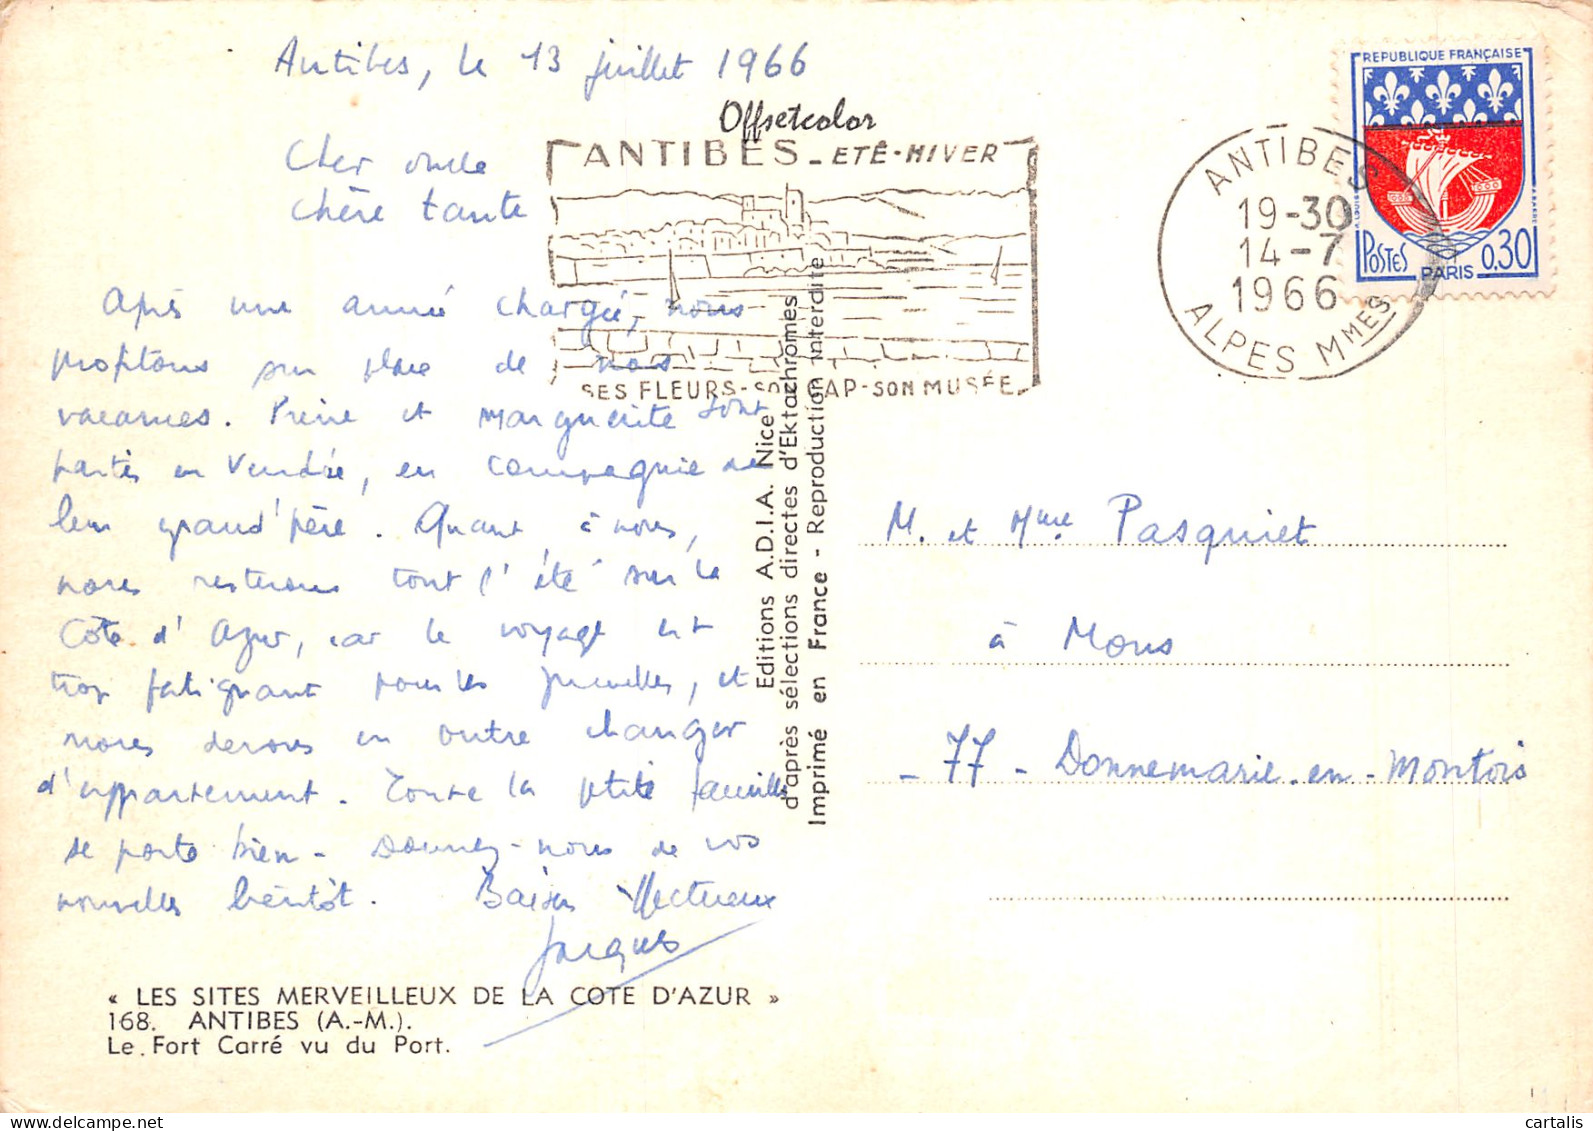 Antibes, le 13 juillet 1966
Offsetcolor
Cher oncle
chère tante
Après une année chargée, nous
profitons sur place de nos
vacances. Pierre et Marguerite sont
partis en Vendée, en compagnie de
leur grand'père. Quant à nous,
nous resterons tout l'été sur la
Côte d'Azur, car le voyage est
trop fatigant pour les jumelles, et
nous devons en outre changer
d'appartement. Toute la petite famille
se porte bien - Donnez-nous de vos
nouvelles bientôt. Baisers affectueux
Jacques
« LES SITES MERVEILLEUX DE LA COTE D'AZUR »
168. ANTIBES (A.-M.).
Le Fort Carré vu du Port.
ANTIBES - ETÉ-HIVER
SES FLEURS - SON CAP - SON MUSÉE
Editions A.D.I.A. Nice
d'après sélections directes d'Ektachromes
Imprimé en France - Reproduction interdite
ANTIBES
19-30
14-7
1966
ALPES MMES
REPUBLIQUE FRANÇAISE
POSTES
PARIS
0,30
M. et Mme Pasquiet
à Mons
- 77 - Donnemarie-en-Montois
cartalis
www.delcampe.net